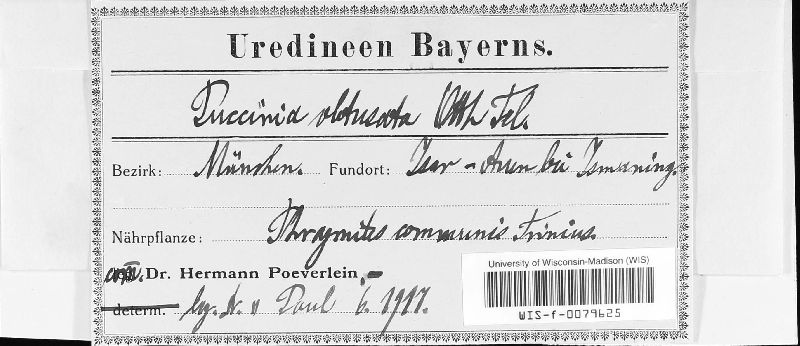 Uredineen Bayerns.
Puccinia obtusata Otth Fel.
Bezirk: München. Fundort: Isar-Auen bei Ismaning.
Nährpflanze: Phragmites communis Trinius.
com. Dr. Hermann Poeverlein.
determ. lg. Dr. v Paul 6. 1917.
University of Wisconsin-Madison (WIS)
WIS-f-0079625